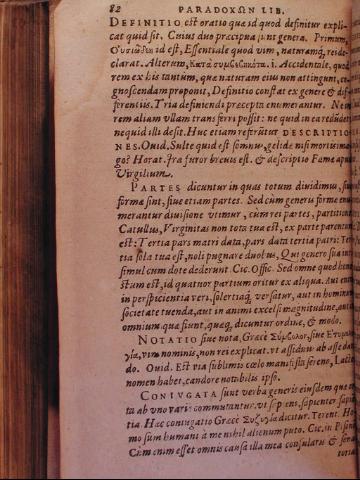 82 PARADOXΩN LIB.
DEFINITIO est oratio quæ id quod definitur expli-
cat quid sit. Cuius duo præcipua sunt genera. Primum,
Οὐσιώδης id est, Essentiale quod vim, naturamq́; rei de-
clarat. Alterum, κατὰ συμβεβηκότα. i. Accidentale, quod
rem ex his tantùm, quæ naturam eius non attingunt, co-
gnoscendam proponit, Definitio constat ex genere & dif-
ferentiis. Tria definiendi præcepta enumerantur. Ne in
rem aliam vllam transferri possit: ne quid in ea redũdet:
ne quid illi desit. Huc etiam referũtur DESCRIPTIO-
NES. Ouid, Stulte quid est somnus, gelidæ nisi mortis ima-
go? Horat. Ira furor breuis est. & descriptio Famæ apud
Virgilium.
PARTES dicuntur in quas totum diuidimus, siue
formæ sint, siue etiam partes. Sed cum generis formæ enu-
merantur diuisione vtimur, cum rei partes, partitione.
Catullus, Virginitas non tota tua est, ex parte parentum
est: Tertia pars matri data, pars data tertia patri: Ter-
tia sola tua est, noli pugnare duobus, Qui genero sua iura
simul cum dote dederunt. Cic. Offic. Sed omne quod hone-
stum est, id quatuor partium oritur ex aliqua. Aut enim
in perspicientia veri, solertiaq́; versatur, aut in hominum
societate tuenda, aut in animi excelsi magnitudine, aut in
omnium quæ fiunt, quæq́; dicuntur ordine, & modo.
NOTATIO siue nota, Græcè Σύμβολον, siue Ἐτυμολο-
γία, vim nominis, non rei explicat. vt assiduus ab asse dan-
do. Ouid. Est via sublimis cœlo manifesta sereno, Lactea
nomen habet, candore notabilis ipso.
CONIVGATA sunt verba generis eiusdem quæ or-
ta ab vno variè commutantur. vt sapiens, sapienter sapien-
tia. Hæc coniugatio Græcè Συζυγία dicitur. Terent. Ho-
mo sum humani à me nihil alienum puto. Cic. in Pisonẽ
Cùm enim esset omnis causa illa mea consularis & sena-
toria